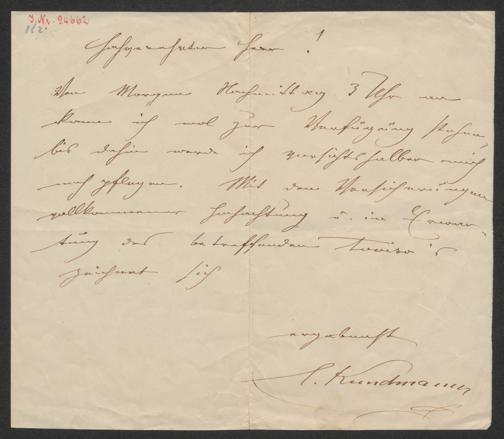 J. Nr. 94662
Hochgeehrter Herr!
Von Morgen Nachmittag 3 Uhr an
kann ich wol zur Verfügung stehen,
bis dahin werde ich vorsichtshalber mich
noch pflegen. Mit den Versicherungen
vollkommener Hochachtung u. in Erwar-
tung des betreffenden Aviso's
zeichnet sich
ergebenst
C. Kundmann